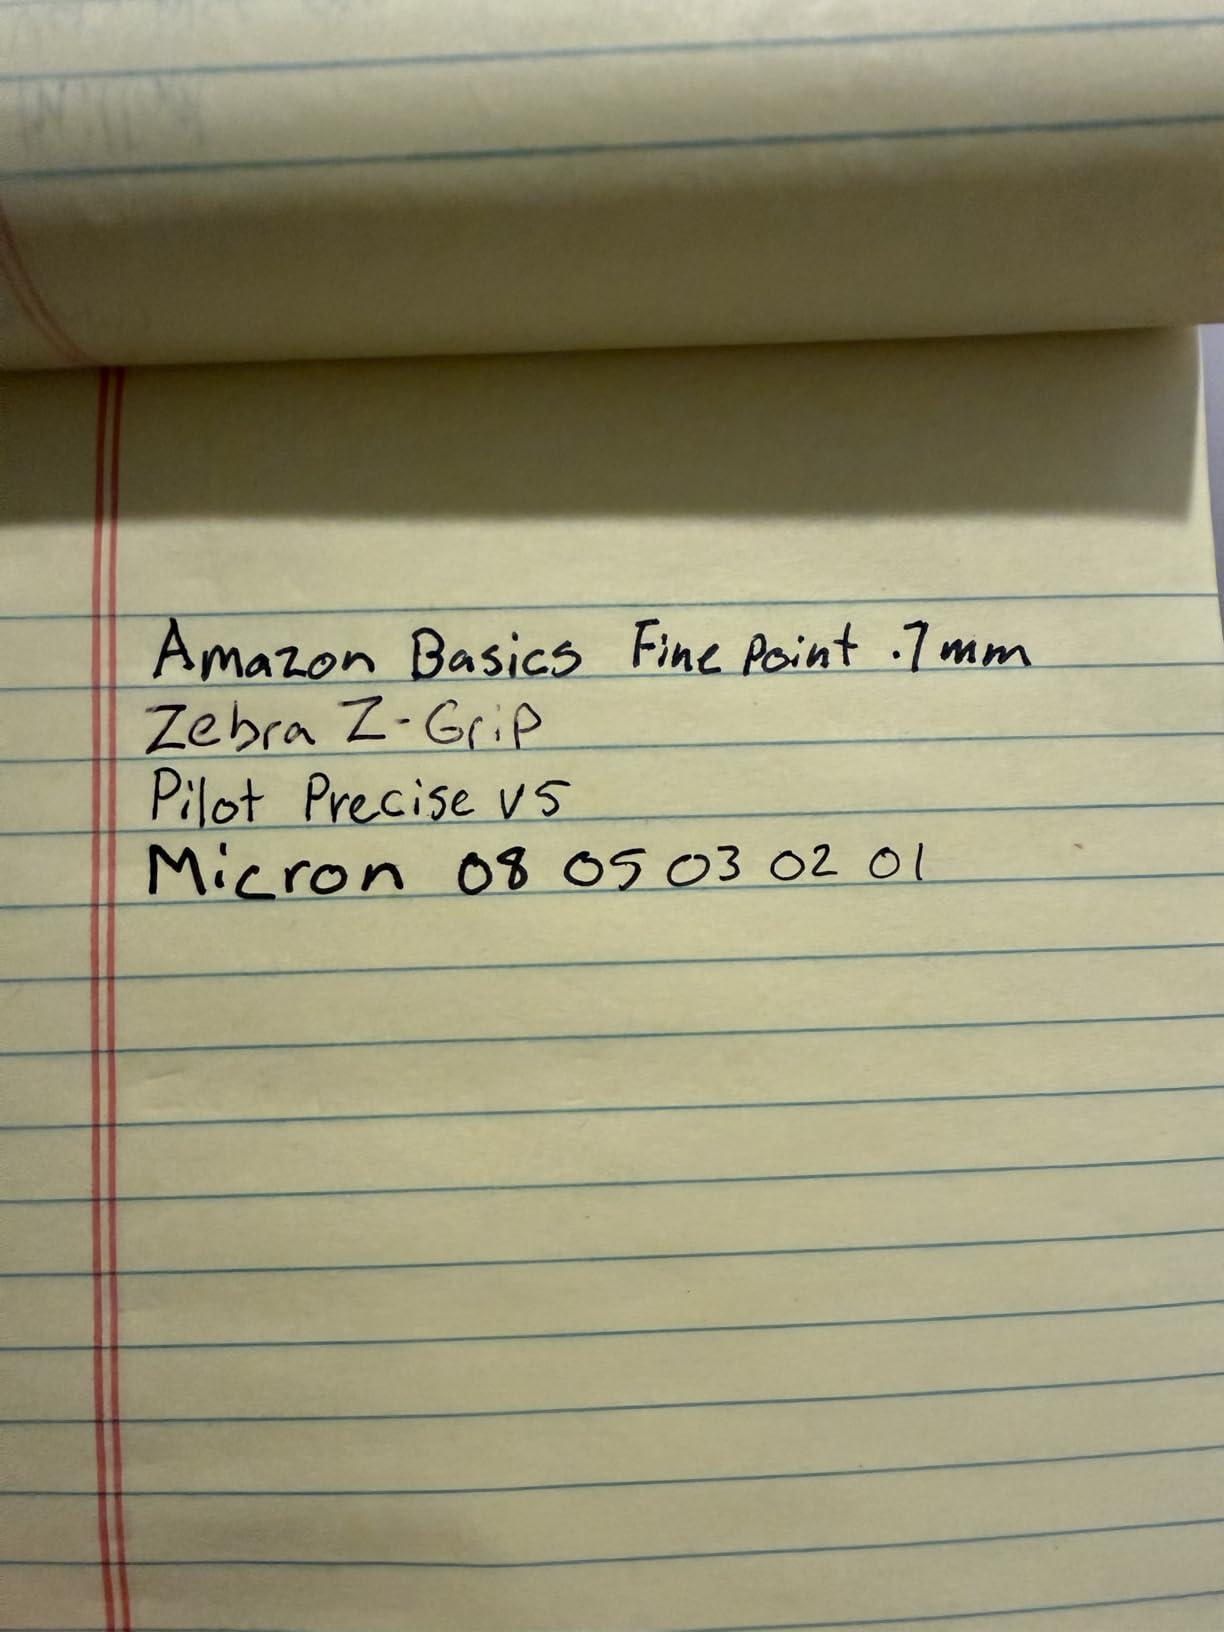 Amazon Basics Fine Point .7mm
Zebra Z-Grip
Pilot Precise V5
Micron 08 05 03 02 01